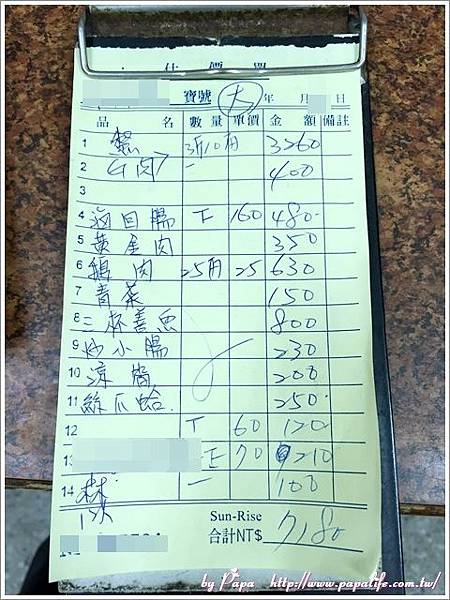 估價單
寶號 大 年 月 日
品名 數量 單價 金額 備註
1 蟹 3斤10两 3260
2 (肉) 一 400
3
4 回腸 T 160 480
5 黃金肉 350
6 鵝肉 25两 25 630
7 青菜 150
8 三杯 魚 800
9 炒小腸 230
10 涼筍 200
11 絲瓜蛤 250
12 T 60 120
13 正 70 210
14 一 100
Sun-Rise
合計NT$ 7180
by Papa http://www.papalife.com.tw/